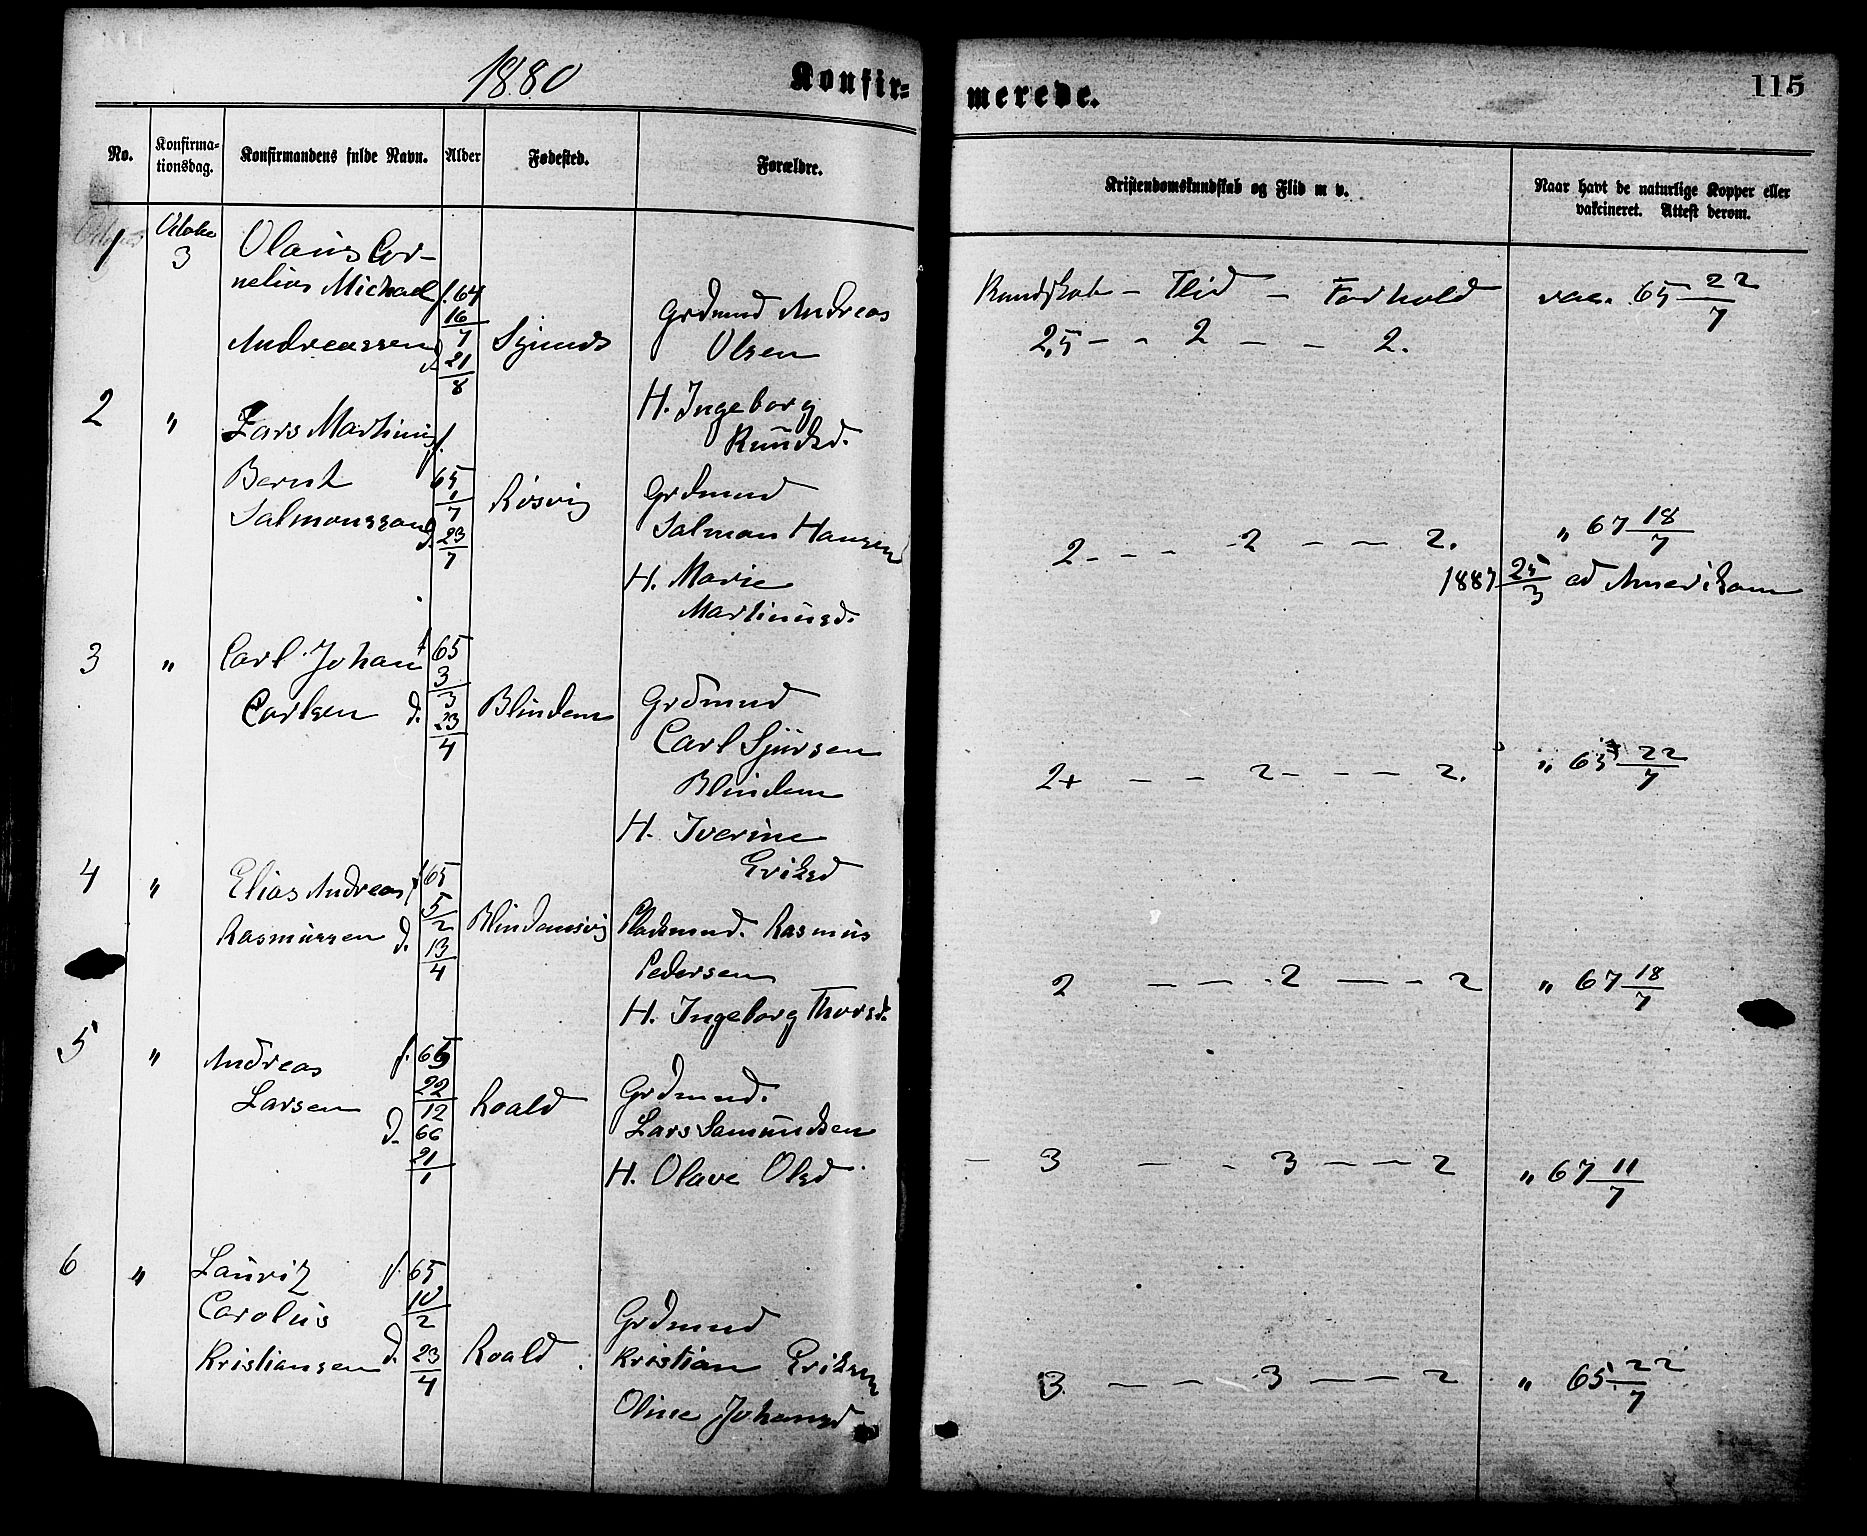 1880
Konfir=
merede.
115
No.
Konfirma-
tionsdag.
Konfirmandens fulde Navn.
Alder
Fødested.
Forældre.
Kristendomskundskab og Flid m v.
Naar havt de naturlige Kopper eller
vakcineret. Attest derom.
1
Oktober
3
Olaus Cor-
nelius Michael
Andreassen
f. 64
16/7
d. 21/8
Synnes
Grdmnd Andreas
Olsen
H. Ingeborg
Knudsd.
Kundskab - Flid - Forhold
2,5 - - 2 - - 2.
vac. 65 22/7
2
"
Lars Martinus
Bernt
Salmonssen
f.
65
1/7
d. 23/7
Røsvig
Grdmnd
Salmon Hansen
H. Marie
Martinusd.
2 - - - 2 - - 2.
" 67 18/7
1887 25/3 ad Amerikam
3
"
Carl Johan
Carlsen
f 65
3/3
d. 23/4
Blindem
Grdmnd
Carl Sjursen
Blindem
H. Iverine
Eriksd
2+ - - 2 - - - 2.
" 65 22/7
4
"
Elias Andreas
Rasmussen
f 65
5/2
d. 13/4
Blindemsvig
Pladsmnd. Rasmus
Pedersen
H. Ingeborg Thorsd.
2 - - - 2 - - - 2
" 67 18/7
5
"
Andreas
Larsen
f. 65
22/12
d. 66
21/1
Roald
Grdmnd.
Lars Samundsen
H. Olave Olsd
- 3 - - 3 - - 2
" 67 11/7
6
"
Lauritz
Carolus
Kristiansen
f. 65
10/2
d. 23/4
Roald
Grdmnd
Kristian Eriksen
Oline Johansd
3 - - - 3 - - - 2
" 65 22/7